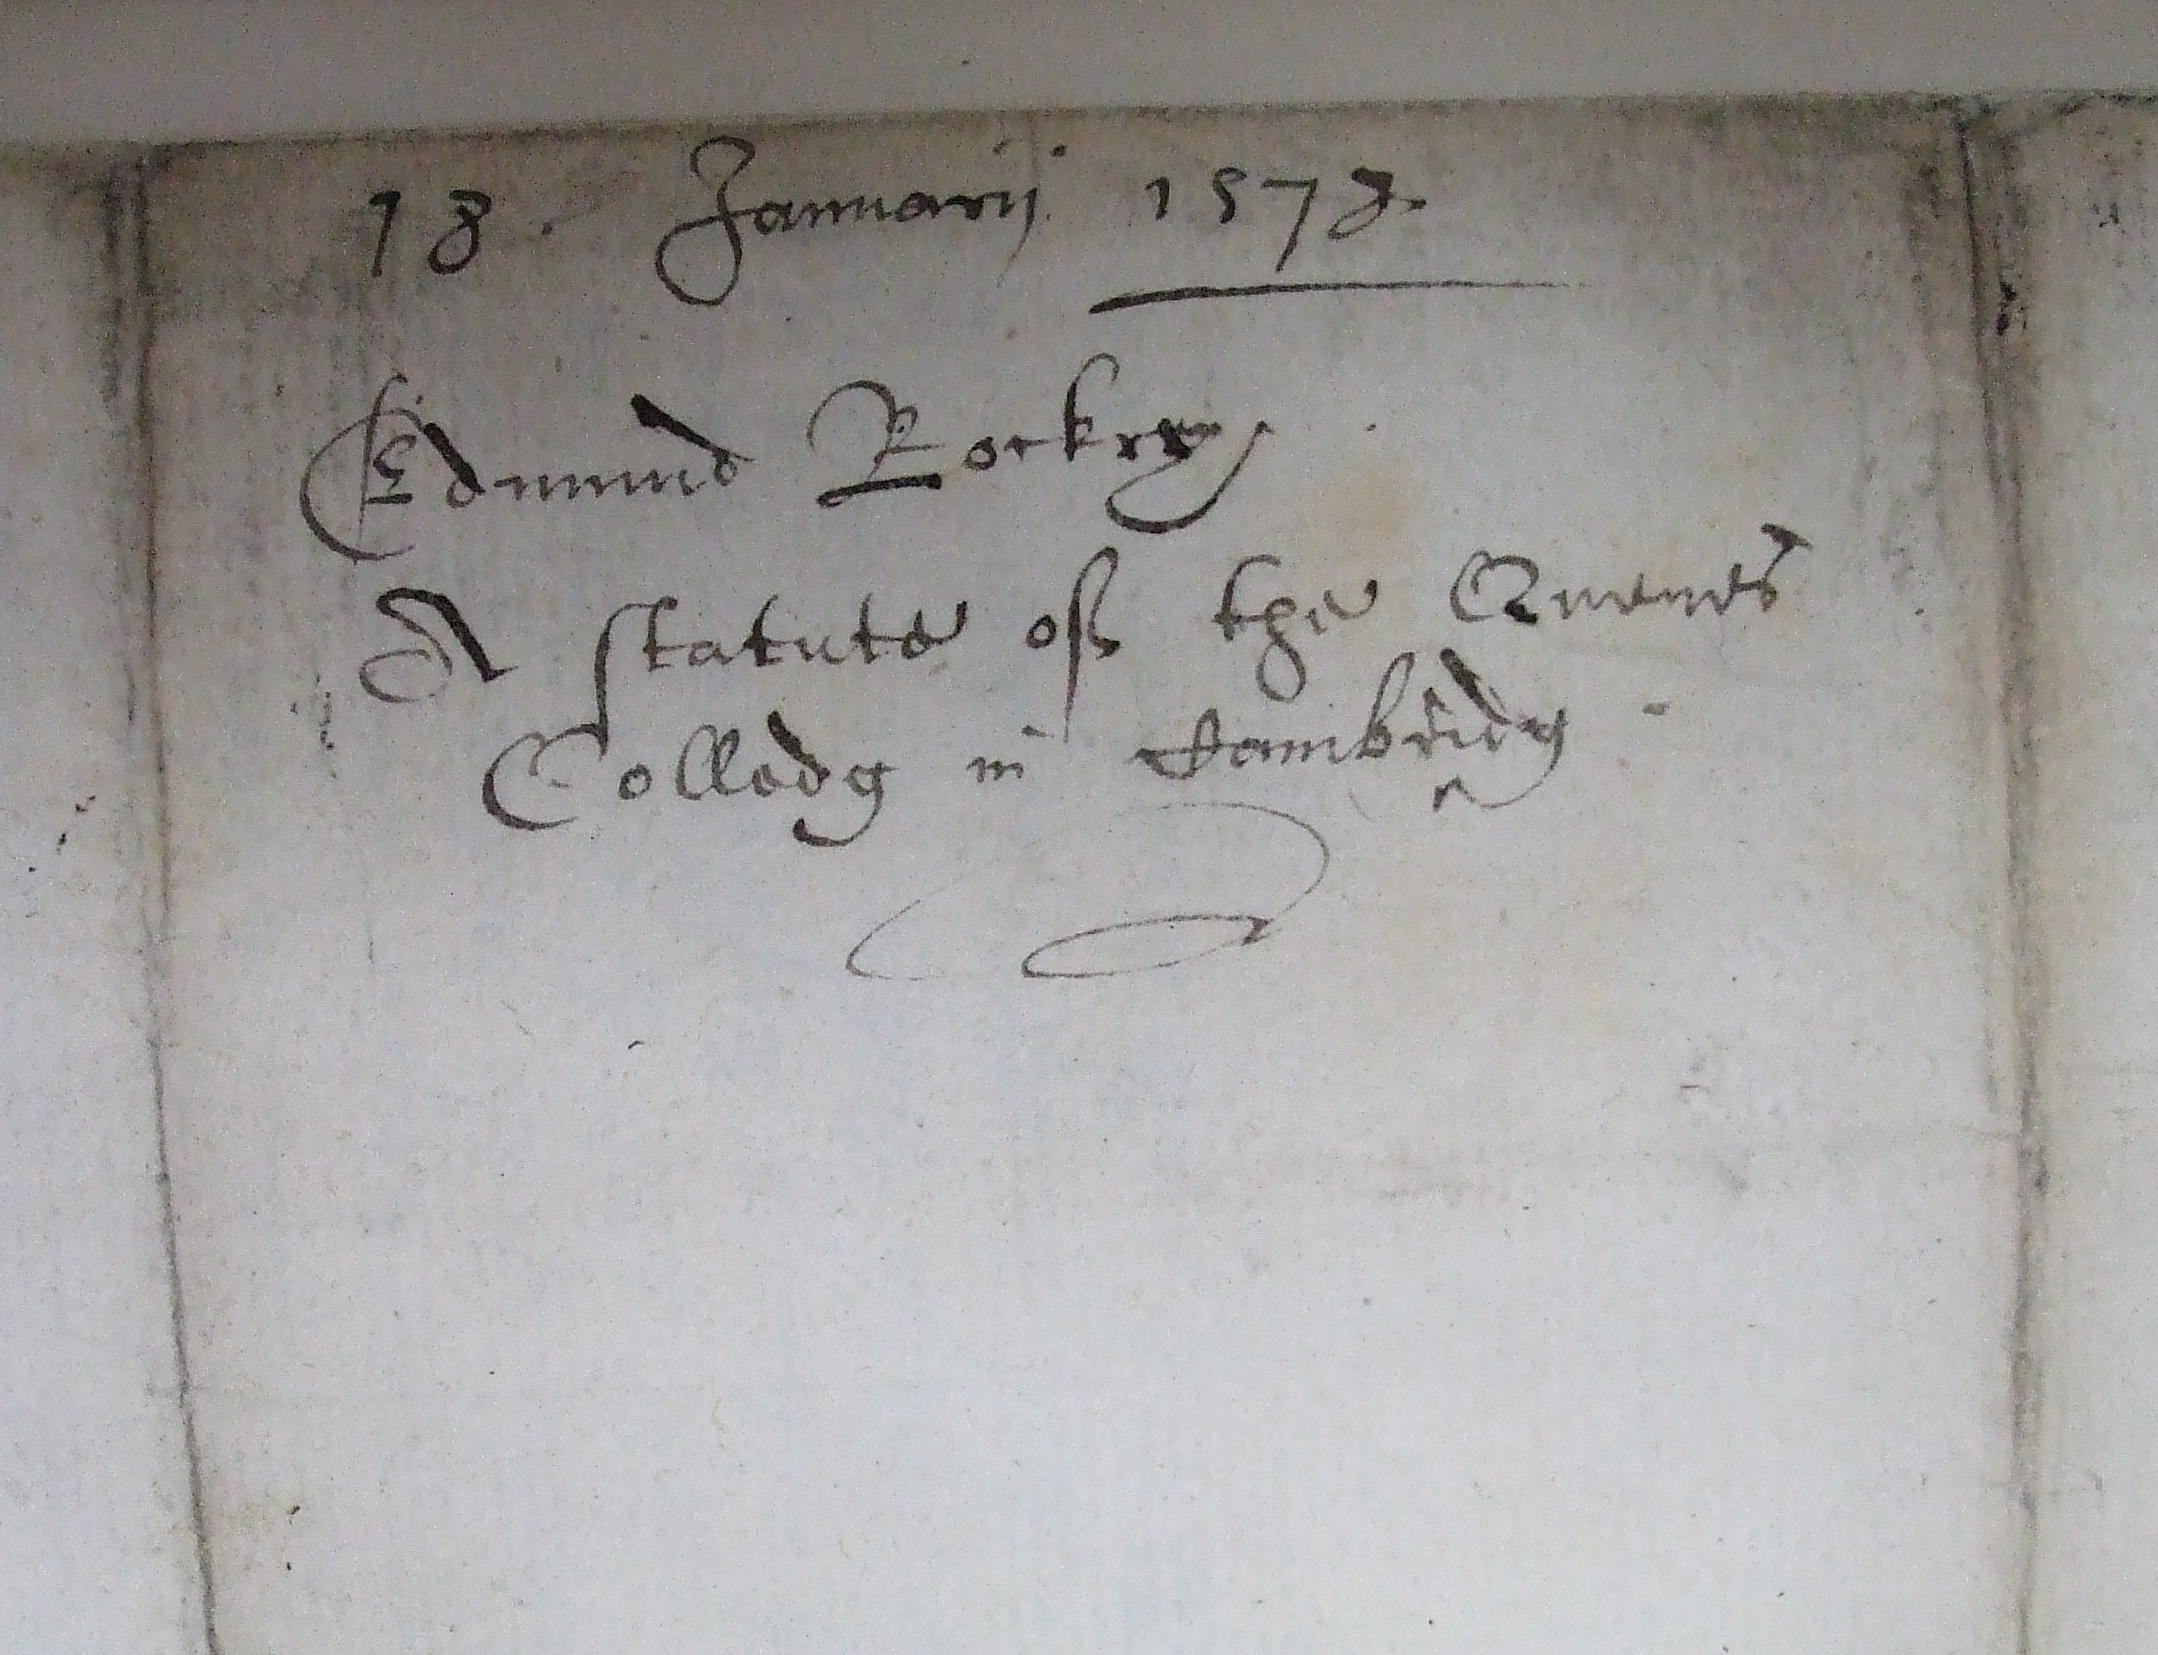 18. Januarij 1578.
Edmund Rockrey.
A statute off the Quenes
Colledg in Cambridg.